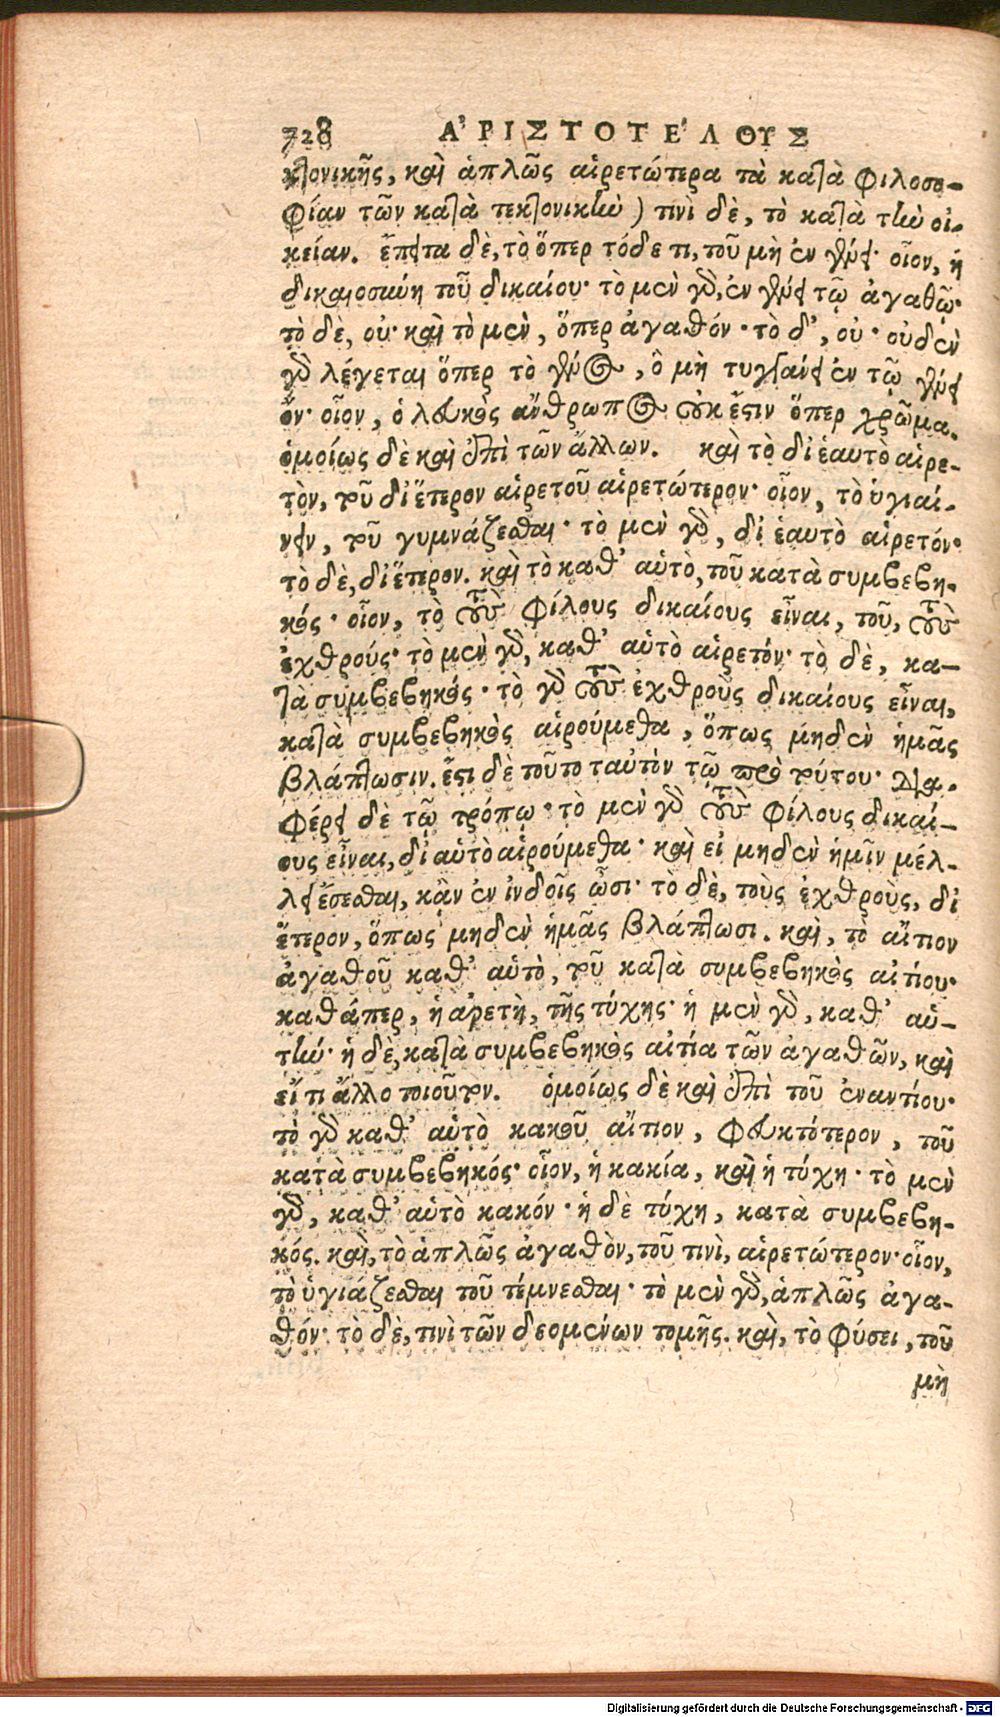 728 ἈΡΙΣΤΟΤΕΛΟΥΣ
κτονικῆς, καὶ ἁπλῶς αἱρετώτερα τὰ κατὰ φιλοσο-
φίαν τῶν κατὰ τεκτονικὴν) τινὶ δὲ, τὸ κατὰ τὴν οἰ-
κείαν. ἔπειτα δὲ, τὸ ὅπερ τόδε τι, τοῦ μὴ ἐν γένει· οἷον, ἡ
δικαιοσύνη τοῦ δικαίου· τὸ μὲν γὰρ, ἐν γένει τῷ ἀγαθῷ·
τὸ δὲ, οὐ· καὶ τὸ μὲν, ὅπερ ἀγαθόν· τὸ δ', οὐ· οὐδὲν
γὰρ λέγεται ὅπερ τὸ γένος, ὃ μὴ τυγχάνει ἐν τῷ γένει
ὄν· οἷον, ὁ λευκὸς ἄνθρωπος οὐκ ἔστιν ὅπερ χρῶμα.
ὁμοίως δὲ καὶ ἐπὶ τῶν ἄλλων. καὶ τὸ δι' ἑαυτὸ αἱρε-
τὸν, τοῦ δι' ἕτερον αἱρετοῦ αἱρετώτερον· οἷον, τὸ ὑγιαί-
νειν, τοῦ γυμνάζεσθαι· τὸ μὲν γὰρ, δι' ἑαυτὸ αἱρετόν·
τὸ δὲ, δι' ἕτερον. καὶ τὸ καθ' αὑτὸ, τοῦ κατὰ συμβεβη-
κός· οἷον, τὸ τοὺς φίλους δικαίους εἶναι, τοῦ, τοὺς
ἐχθρούς· τὸ μὲν γὰρ, καθ' αὑτὸ αἱρετόν· τὸ δὲ, κα-
τὰ συμβεβηκός· τὸ γὰρ τοὺς ἐχθροὺς δικαίους εἶναι,
κατὰ συμβεβηκὸς αἱρούμεθα, ὅπως μηδὲν ἡμᾶς
βλάπτωσιν. ἔστι δὲ τοῦτο ταὐτὸν τῷ πρὸ τούτου· δια-
φέρει δὲ τῷ τρόπῳ· τὸ μὲν γὰρ τοὺς φίλους δικαί-
ους εἶναι, δι' αὑτὸ αἱρούμεθα· καὶ εἰ μηδὲν ἡμῖν μέλ-
λει ἔσεσθαι, κἂν ἐν ἰνδοῖς ὦσι· τὸ δὲ, τοὺς ἐχθροὺς, δι'
ἕτερον, ὅπως μηδὲν ἡμᾶς βλάπτωσι. καὶ, τὸ αἴτιον
ἀγαθοῦ καθ' αὑτὸ, τοῦ κατὰ συμβεβηκὸς αἰτίου·
καθάπερ, ἡ ἀρετὴ, τῆς τύχης· ἡ μὲν γὰρ, καθ' αὑ-
τήν· ἡ δὲ, κατὰ συμβεβηκὸς αἰτία τῶν ἀγαθῶν, καὶ
εἴ τι ἄλλο τοιοῦτον. ὁμοίως δὲ καὶ ἐπὶ τοῦ ἐναντίου·
τὸ γὰρ καθ' αὑτὸ κακοῦ αἴτιον, φευκτότερον, τοῦ
κατὰ συμβεβηκός· οἷον, ἡ κακία, καὶ ἡ τύχη· τὸ μὲν
γὰρ, καθ' αὑτὸ κακόν· ἡ δὲ τύχη, κατὰ συμβεβη-
κός. καὶ, τὸ ἁπλῶς ἀγαθὸν, τοῦ τινὶ, αἱρετώτερον· οἷον,
τὸ ὑγιάζεσθαι τοῦ τέμνεσθαι· τὸ μὲν γὰρ, ἁπλῶς ἀγα-
θόν· τὸ δὲ, τινὶ τῶν δεομένων τομῆς. καὶ, τὸ φύσει, τοῦ
μὴ
Digitalisierung gefördert durch die Deutsche Forschungsgemeinschaft - DFG